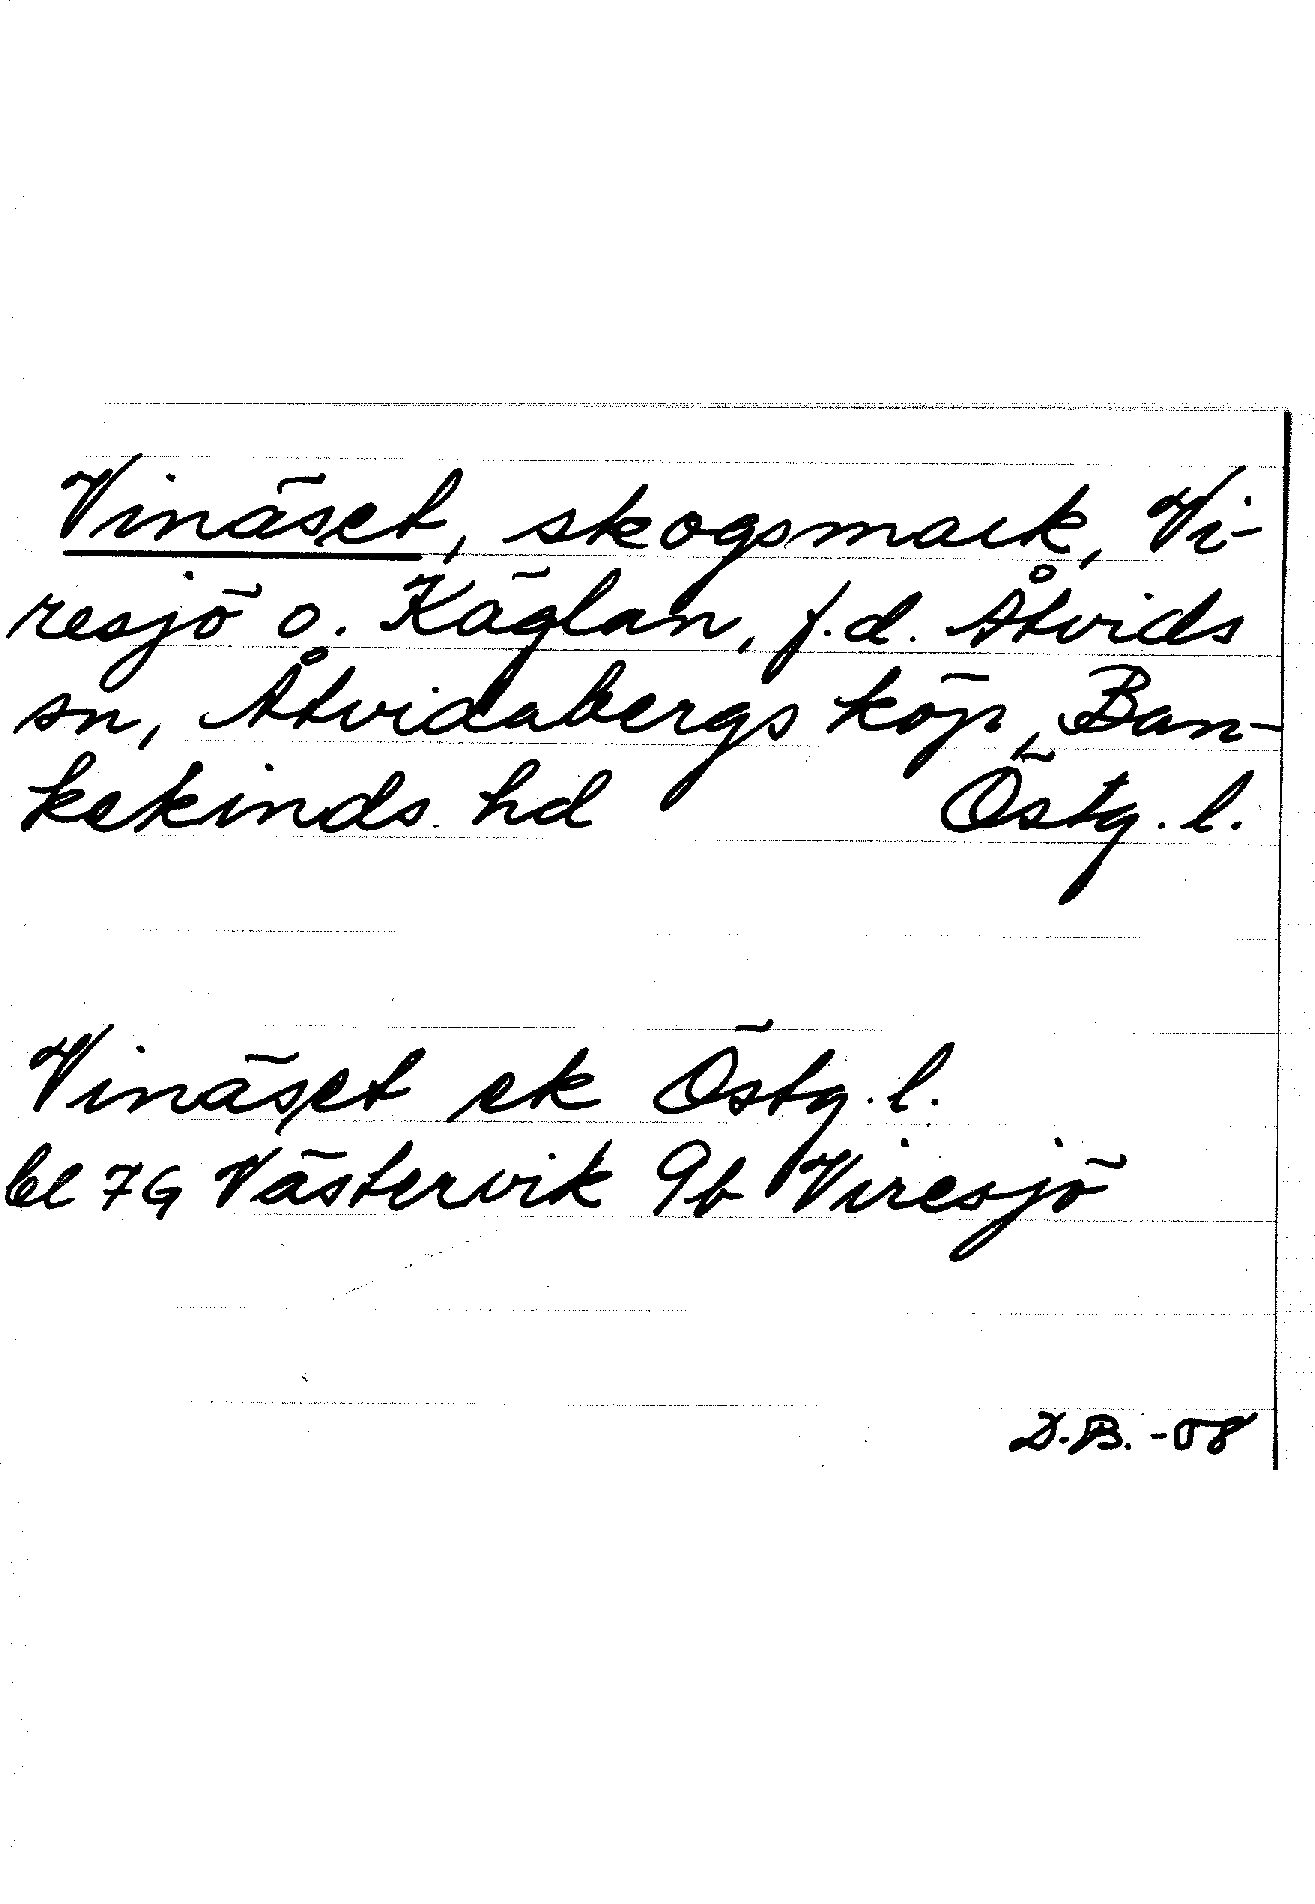 Vinäset, skogsmark, Vi-
resjö o. Käglan, f.d. Åtvids
sn, Åtvidabergs köp, Ban-
kekinds hd Östg. l.
Vinäset ek Östg. l.
bl 7G Västervik 9b Viresjö
D.B. -08